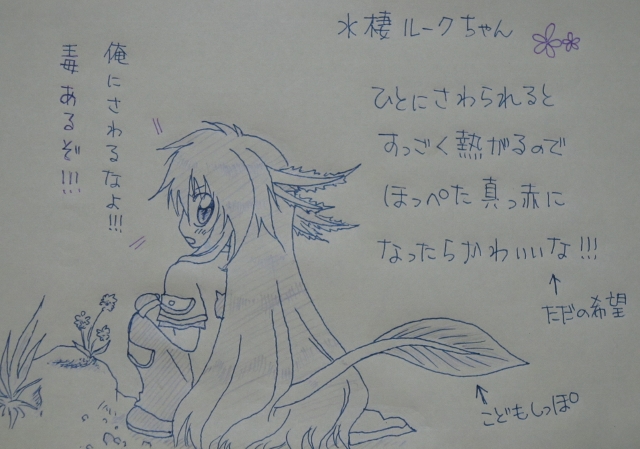 水棲ルークちゃん
俺にさわるなよ!!!
毒あるぞ!!!
ひとにさわられると
すっごく熱がるので
ほっぺた真っ赤に
なったらかわいいな!!!
↑
ただの希望
↑
こどもしっぽ